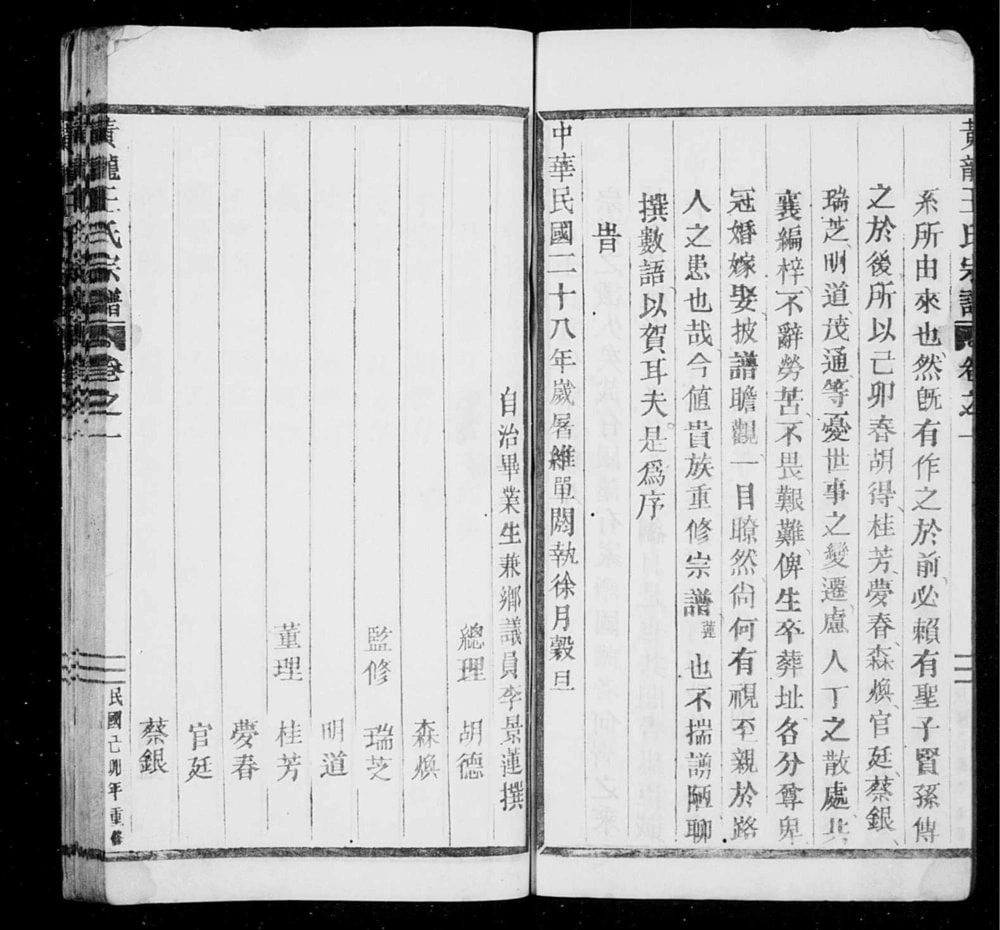 黃龍王氏宗譜 卷之一
系所由來也然旣有作之於前必賴有聖子賢孫傳
之於後所以己卯春胡得桂芳夢春森煥官廷蔡銀
瑞芝明道茂通等憂世事之變遷慮人丁之散處共
襄編梓不辭勞苦不畏艱難俾生卒葬址各分尊卑
冠婚嫁娶披譜瞻觀一目瞭然尙何有視至親於路
人之患也哉今値貴族重修宗譜蓮也不揣譾陋聊
撰數語以賀耳夫是爲序
旹
中華民國二十八年歲屠維單閼執徐月榖旦
自治畢業生兼鄉議員李景蓮撰
總理 胡德
森煥
監修 瑞芝
明道
董理 桂芳
夢春
官廷
蔡銀
黃龍王氏宗譜 卷之一
民國己卯年重修